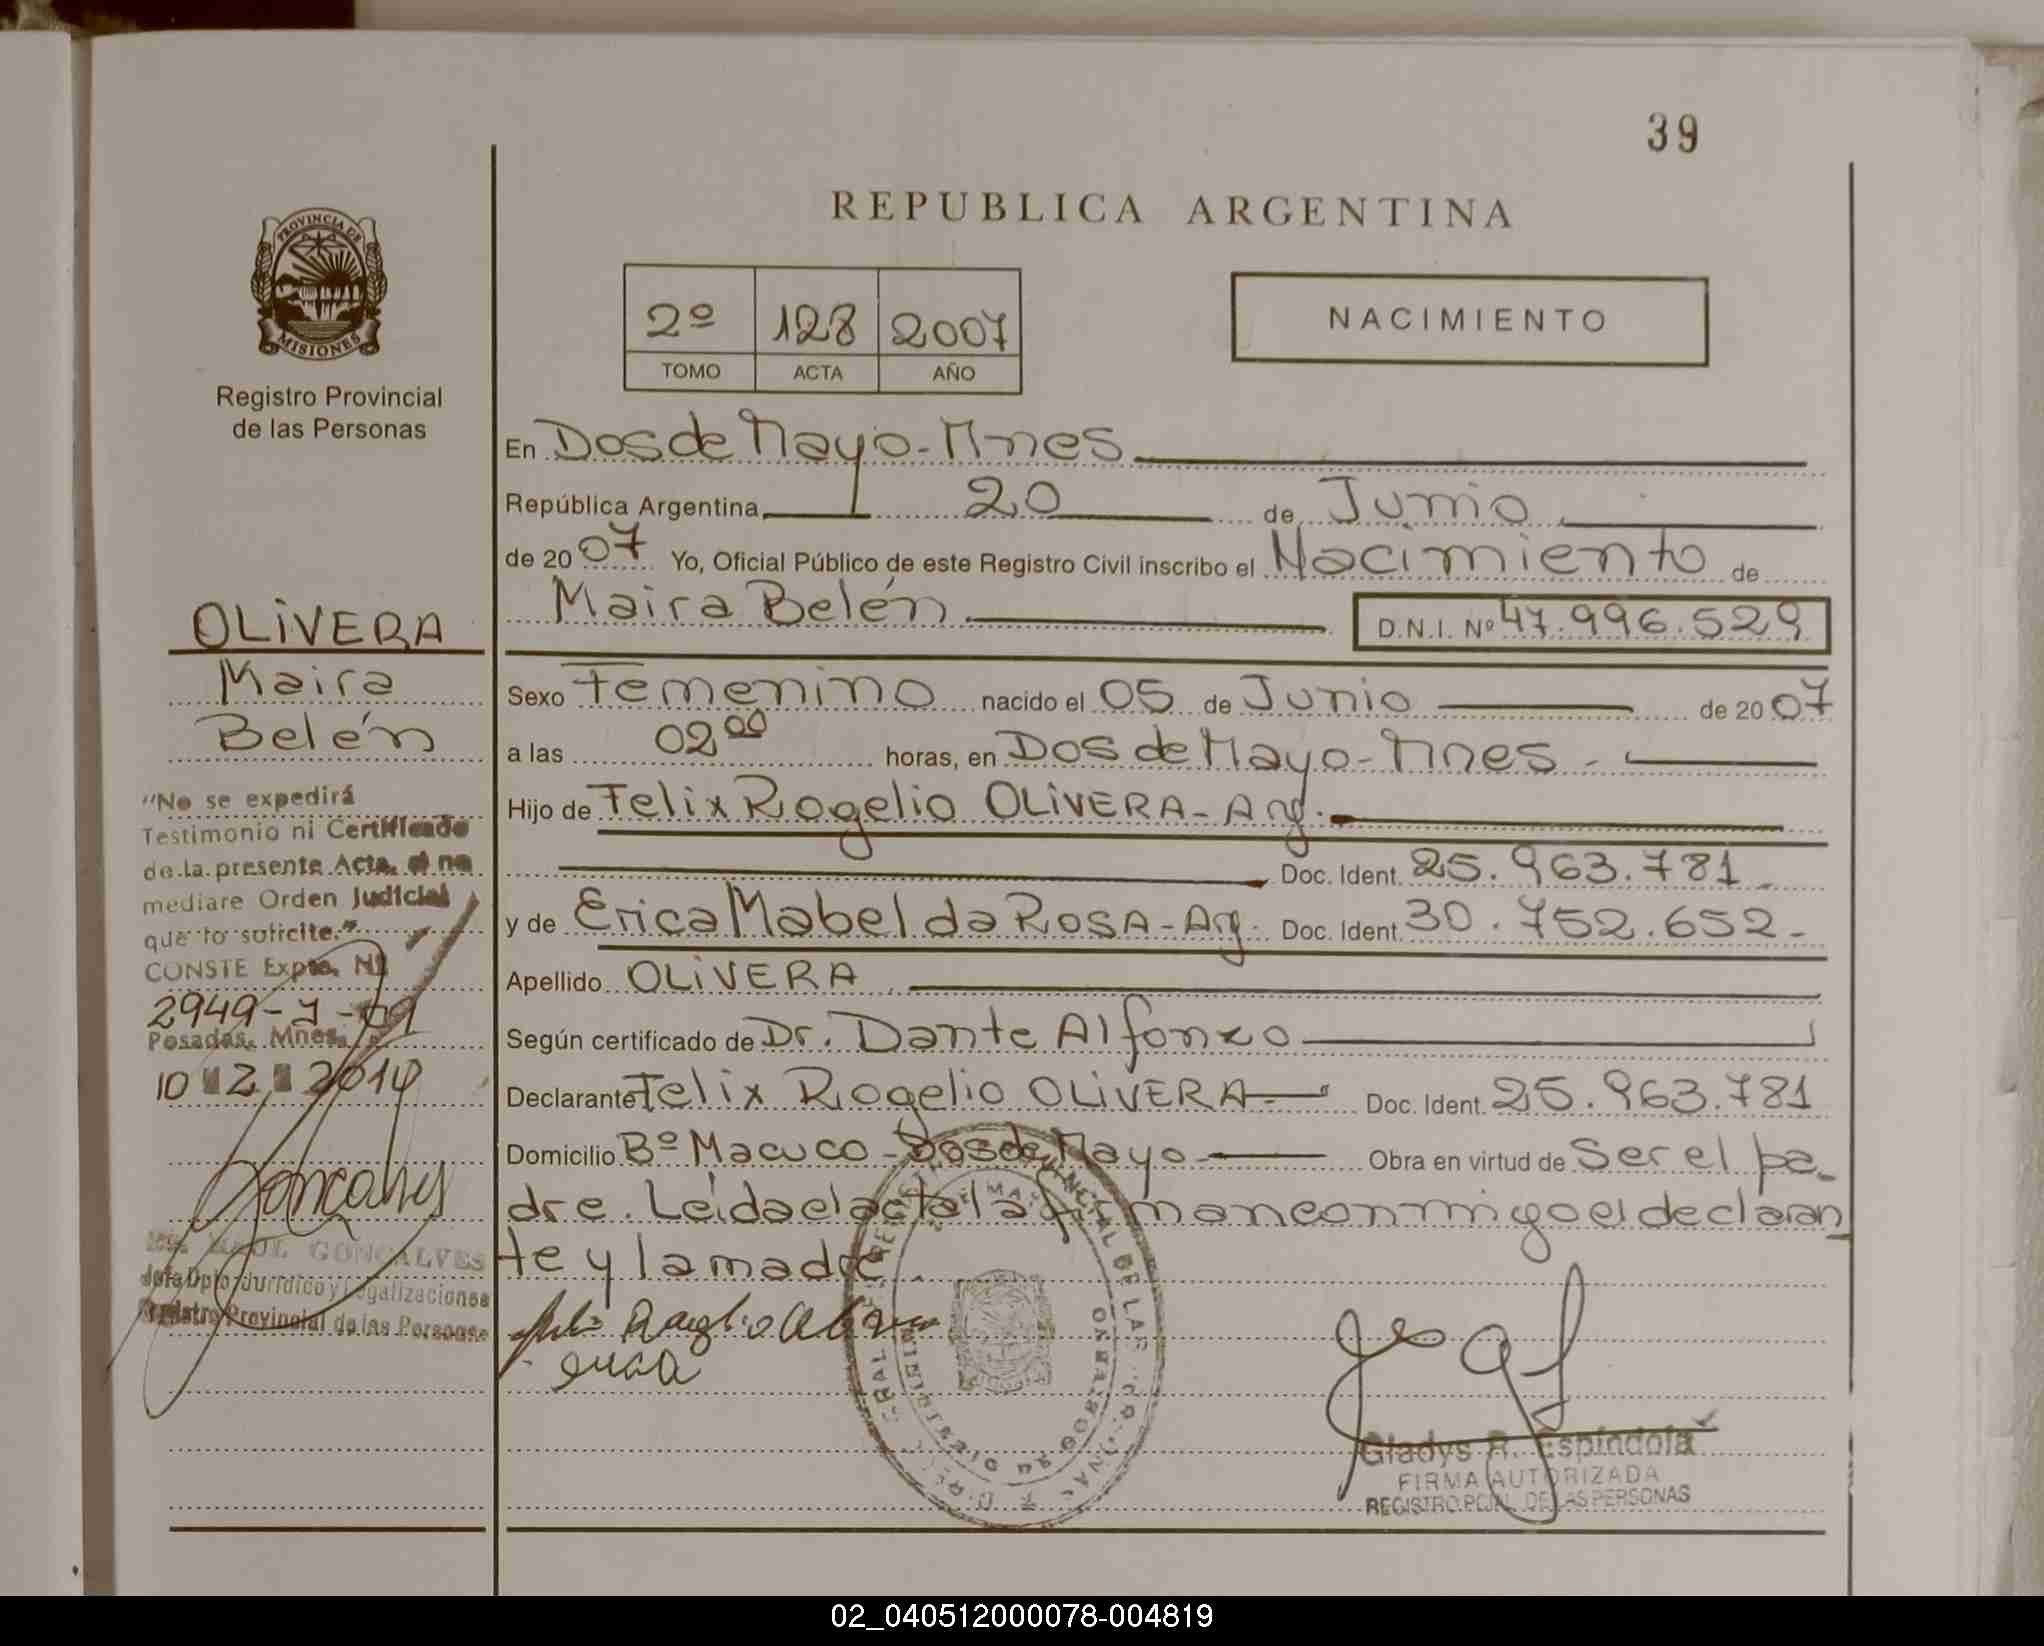 39
REPUBLICA ARGENTINA
PROVINCIA DE
MISIONES
Registro Provincial
de las Personas
2º 128 2007
TOMO ACTA AÑO
NACIMIENTO
En Dos de Mayo - Mnes
República Argentina 20 de Junio
de 2007 Yo, Oficial Público de este Registro Civil inscribo el Nacimiento de
Maira Belén D.N.I. Nº 47.996.529
OLIVERA
Maira
Belén
"No se expedirá
Testimonio ni Certificado
de la presente Acta, si no
mediare Orden Judicial
que lo solicite."
CONSTE Expte. Nº
2949-J-09
Posadas, Mnes.
10 2 2010
Goncalves
RAUL GONCALVES
Jefe Dpto. Jurídico y Legalizaciones
Registro Provincial de las Personas
Sexo Femenino nacido el 05 de Junio de 2007
a las 02 00 horas, en Dos de Mayo - Mnes -
Hijo de Felix Rogelio OLIVERA - Arg.
Doc. Ident. 25.963.781
y de Erica Mabel da ROSA - Arg. Doc. Ident. 30.752.652 -
Apellido OLIVERA
Según certificado de Dr. Dante Alfonzo
Declarante Felix Rogelio OLIVERA Doc. Ident. 25.963.781
Domicilio Bº Macuco - Dos de Mayo Obra en virtud de Ser el pa-
dre. Leída el acta la firman conmigo el declaran
te y la madre.
Rogelio
erica
Gladys R. Espindola
FIRMA AUTORIZADA
REGISTRO PCIAL. DE LAS PERSONAS
02_040512000078-004819